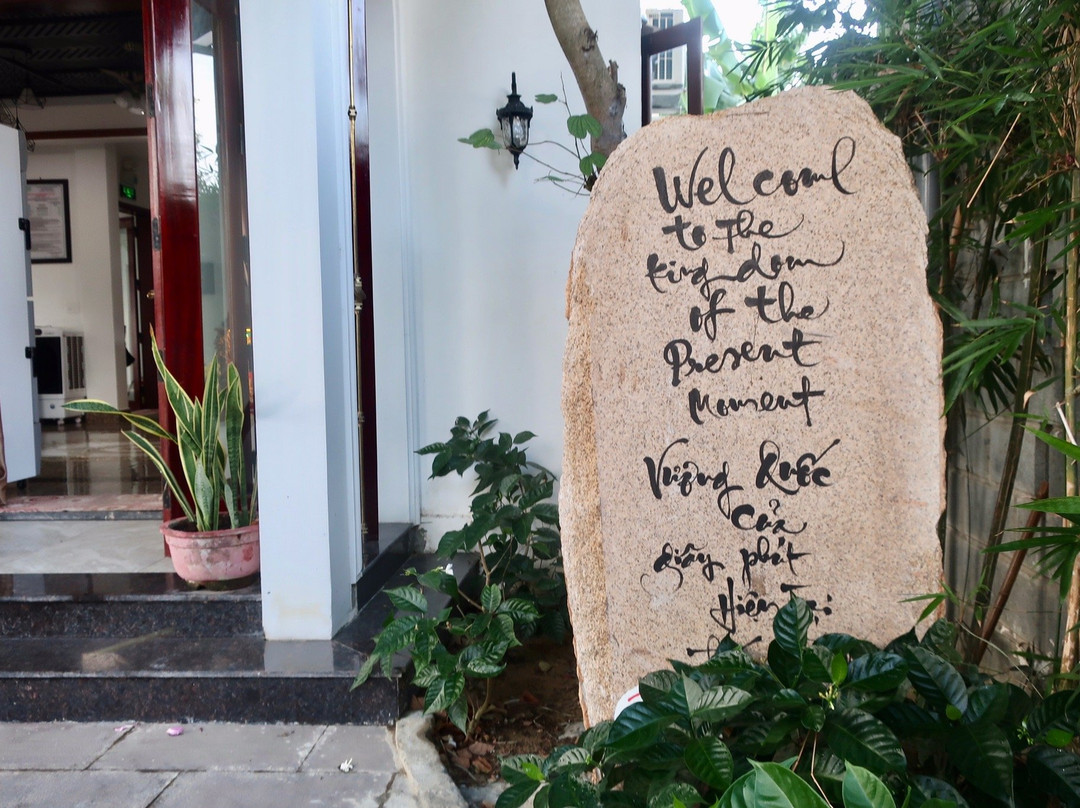 Welcome
to The
kingdom
of the
Present
Moment
Vượng Quốc
Của
giây phút
Hiện Tại